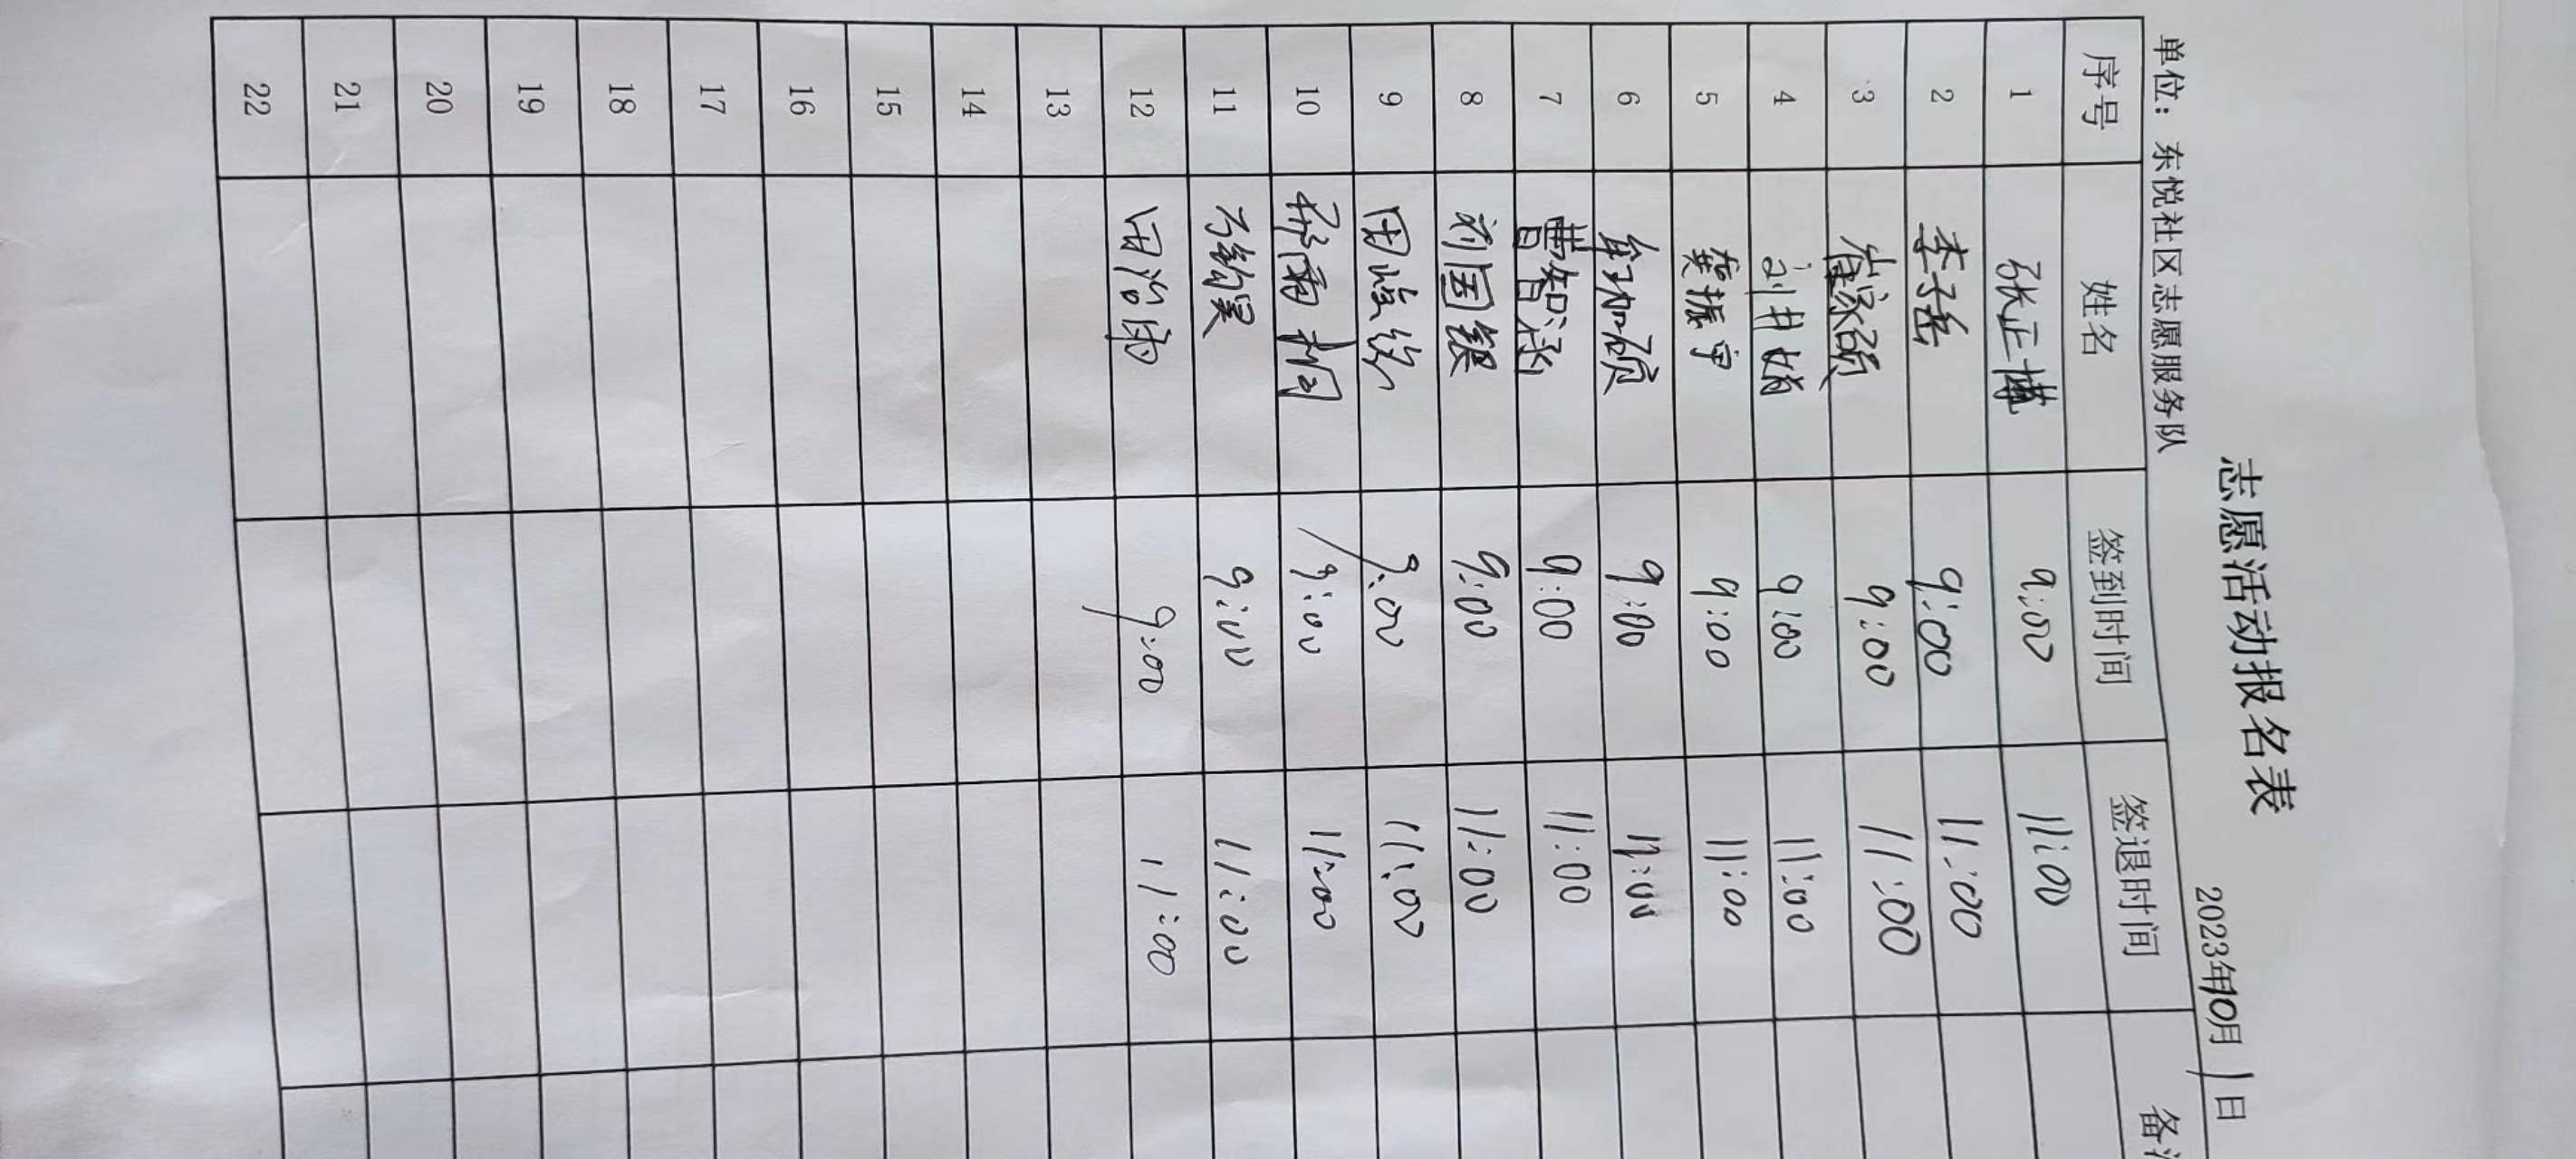 志愿活动报名表
2023年10月1日
单位：东悦社区志愿服务队
序号 姓名 签到时间 签退时间 备注
1 张正博 9:00 11:00
2 李子岳 9:00 11:00
3 崔家硕 9:00 11:00
4 刘井娟 9:00 11:00
5 龚振宇 9:00 11:00
6 9:00 11:00
7 曹智涵 9:00 11:00
8 刘国银 9:00 11:00
9 9:00 11:00
10 9:00 11:00
11 9:00 11:00
12 9:00 11:00
13
14
15
16
17
18
19
20
21
22